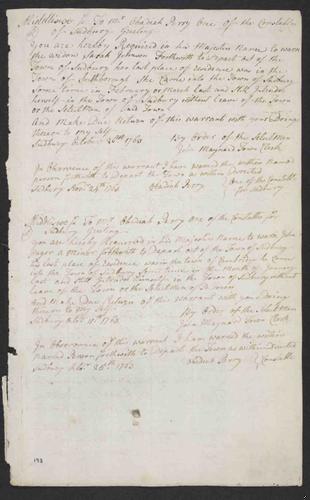 Middlesex ss To Mr. Obadiah Perry One of the Constables
of Sudbury Greeting
You are hereby Required in his Majesties Name to warn
the widow Sarah Johnson Forthwith to Depart out of the
Town of Sudbury her last place of residence was in the
Town of Southborough She Came into the Town of Sudbury
Some time in February or March last and Still Resides
herself in the Town of Sudbury without Leave of the Town
or the Selectmen of said Town
And Make Due Return of this warrant with your Doings
thereon to my Self
Sudbury October 28th 1763 By Order of the Selectmen
John Maynard Town Clerk
In Observance of this warrant I have warned the within Named
person forthwith to Depart the Town as within Directed
Sudbury Novr 24th 1763 Obadiah Perry One of the Constables
for Sudbury
Middlesex ss To Mr. Obadiah Perry One of the Constables for
Sudbury Greeting
you are hereby Required in his Majesties Name to warn John
forthwith to Depart out of the Town of Sudbury
his last place of Residence was in the town of he Came
into the Town of Sudbury Some time in the Month of January
last and Still Resides himself in the Town of Sudbury without
Leave of the Town or the Selectmen of sd Town
And Make Due Return of this warrant with your Doings
thereon to my Self
Sudbury 1763 By Order of the Selectmen
John Maynard Town Clerk
In Observance of this warrant I have warned the within
Named Person forthwith to Depart the Town as within Directed
Sudbury 28th 1763 Obadiah Perry Constable